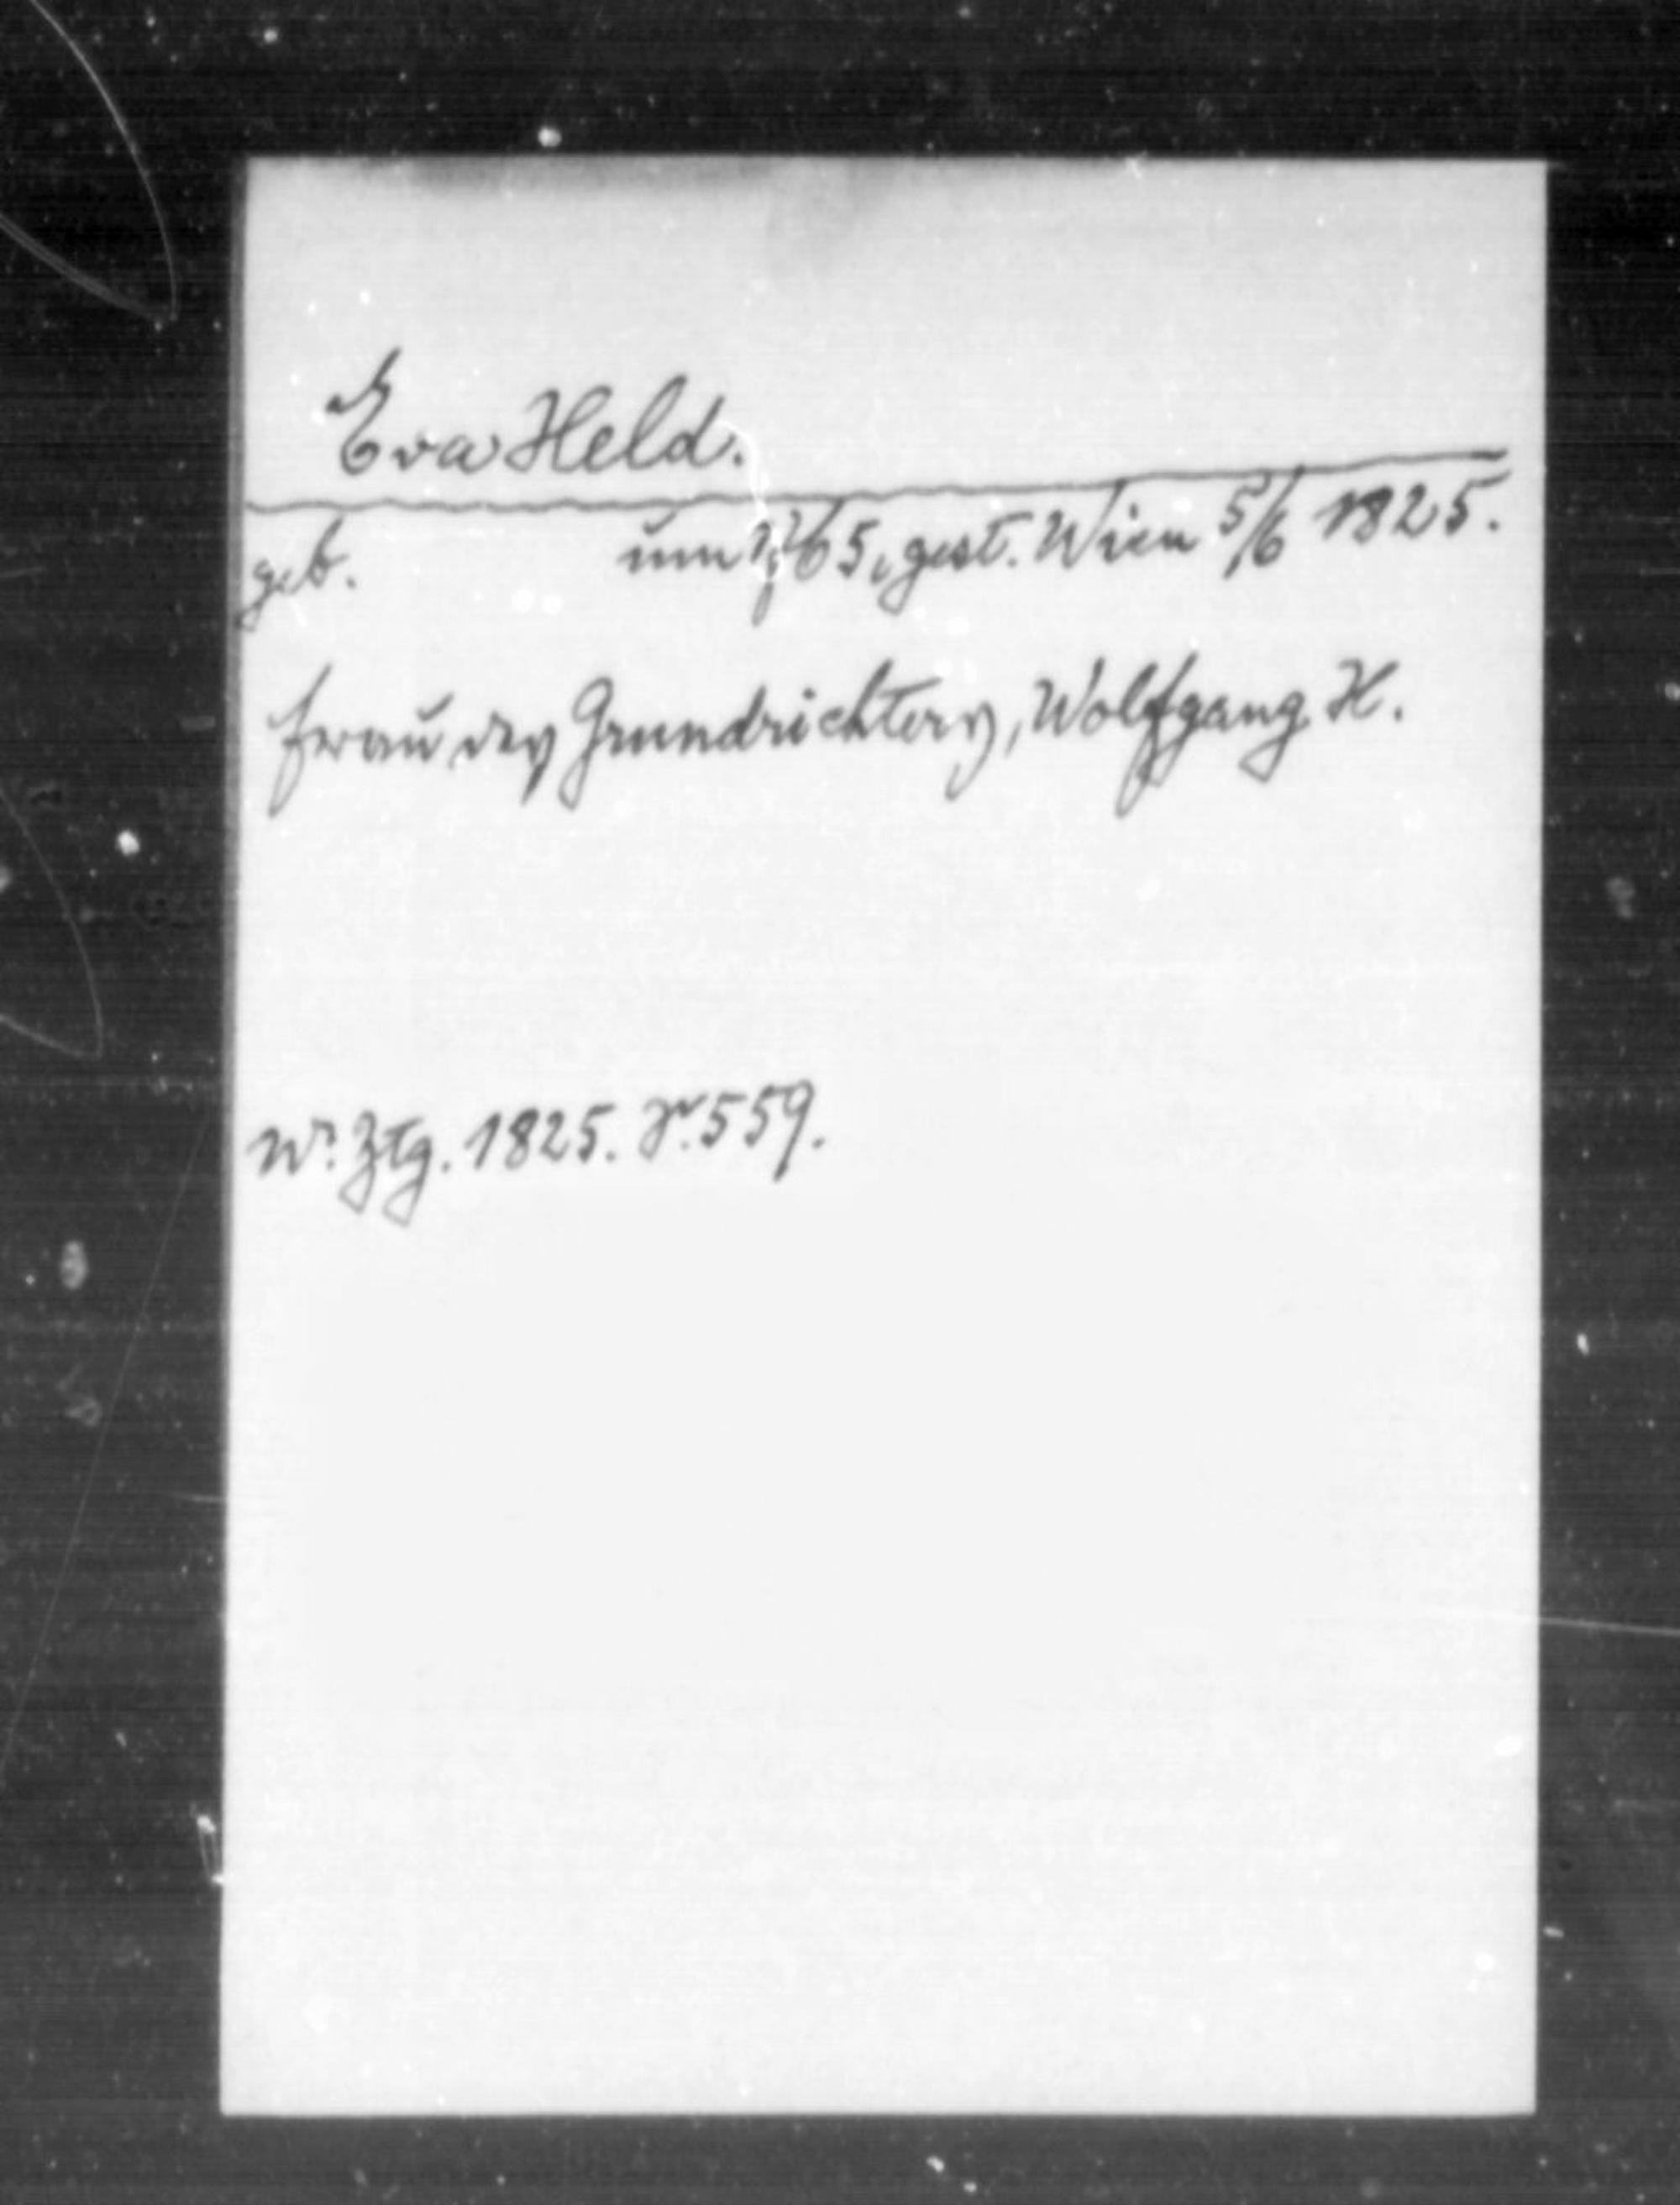 Eva Held.
geb. um 1765, gest. Wien 5/6 1825.
Frau des Grundrichters, Wolfgang H.
Wr. Ztg. 1825. S. 559.